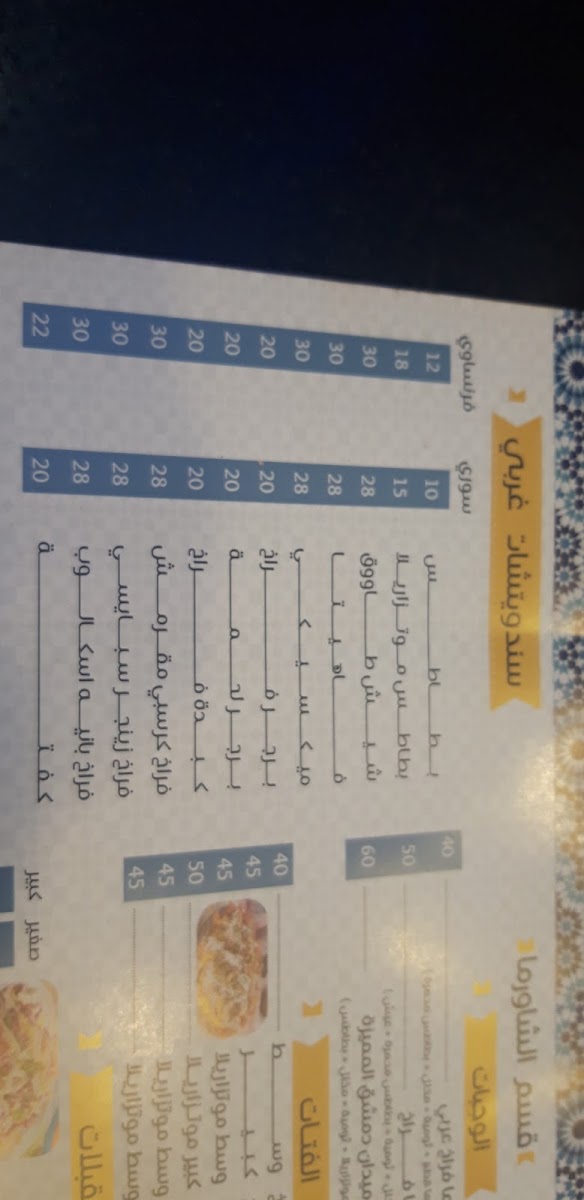 قسم الشاورما
الوجبات
فراخ عربي 40
فراخ 50
ميدان دمشق المميزة 60
الفتات
وسط 40
كبير 45
وسط موتزاريلا 45
كبير موتزاريلا 50
وسط موتزاريلا 45
وسط موتزاريلا 45
صغير كبير
سندويتشات غربي
سوري فرنساوي
بطاطس 10 12
بطاطس موتزاريلا 15 18
شيش طاووق 28 30
فاهيتا 28 30
ميكسيكي 28 30
برجر فراخ 20 20
برجر لحمة 20 20
كبدة فراخ 20 20
فراخ كرسبي مقرمش 28 30
فراخ زينجر سبايسي 28 30
فراخ بانيه اسكالوب 28 30
كفتة 20 22